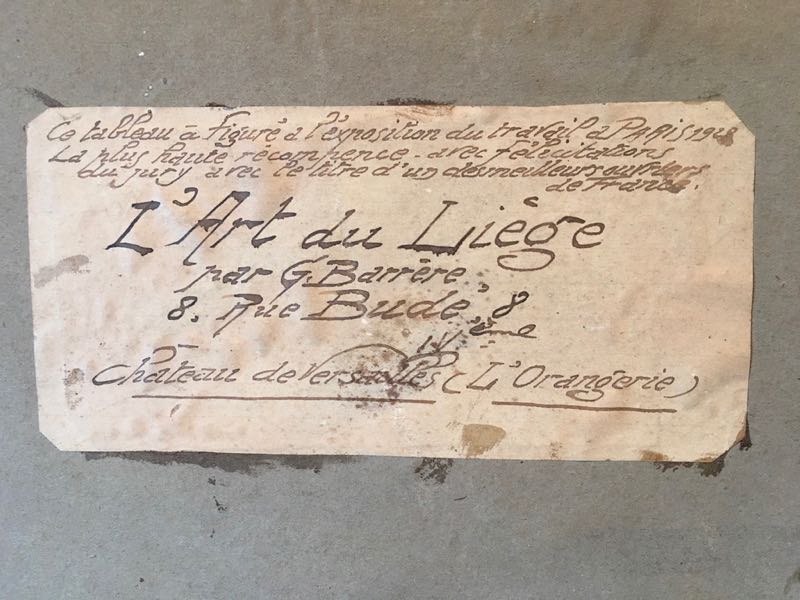 Ce tableau à Figuré a l'exposition du travail à PARIS
La plus haute récompence. avec félicitations
du jury avec le titre d'un des meilleurs ouvriers
de France.
L'Art du Liège
par G. Barrère
8. Rue Budé, 8
ème
Château de Versailles (L'Orangerie)